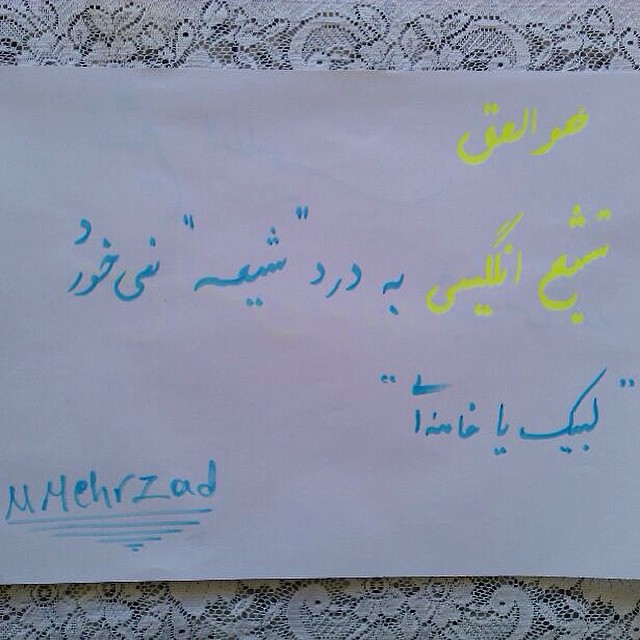 هو الحق
تشیع انگلیسی به درد "شیعه" نمی خورد
"لبیک یا خامنه ای"
M Mehrzad